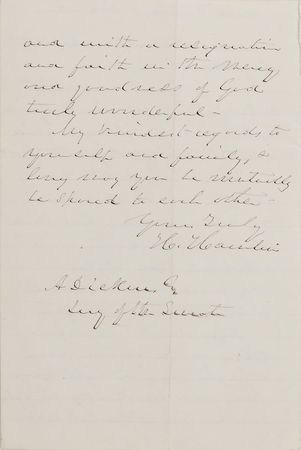 and with a resignation
and faith in the mercy
and goodness of God
truly wonderful -
My kindest regards to
yourself and family, &
long may you be mutually
be spared to each other -
Yours Truly
H. Hamlin
A Dickins Esq
Secy of the Senate